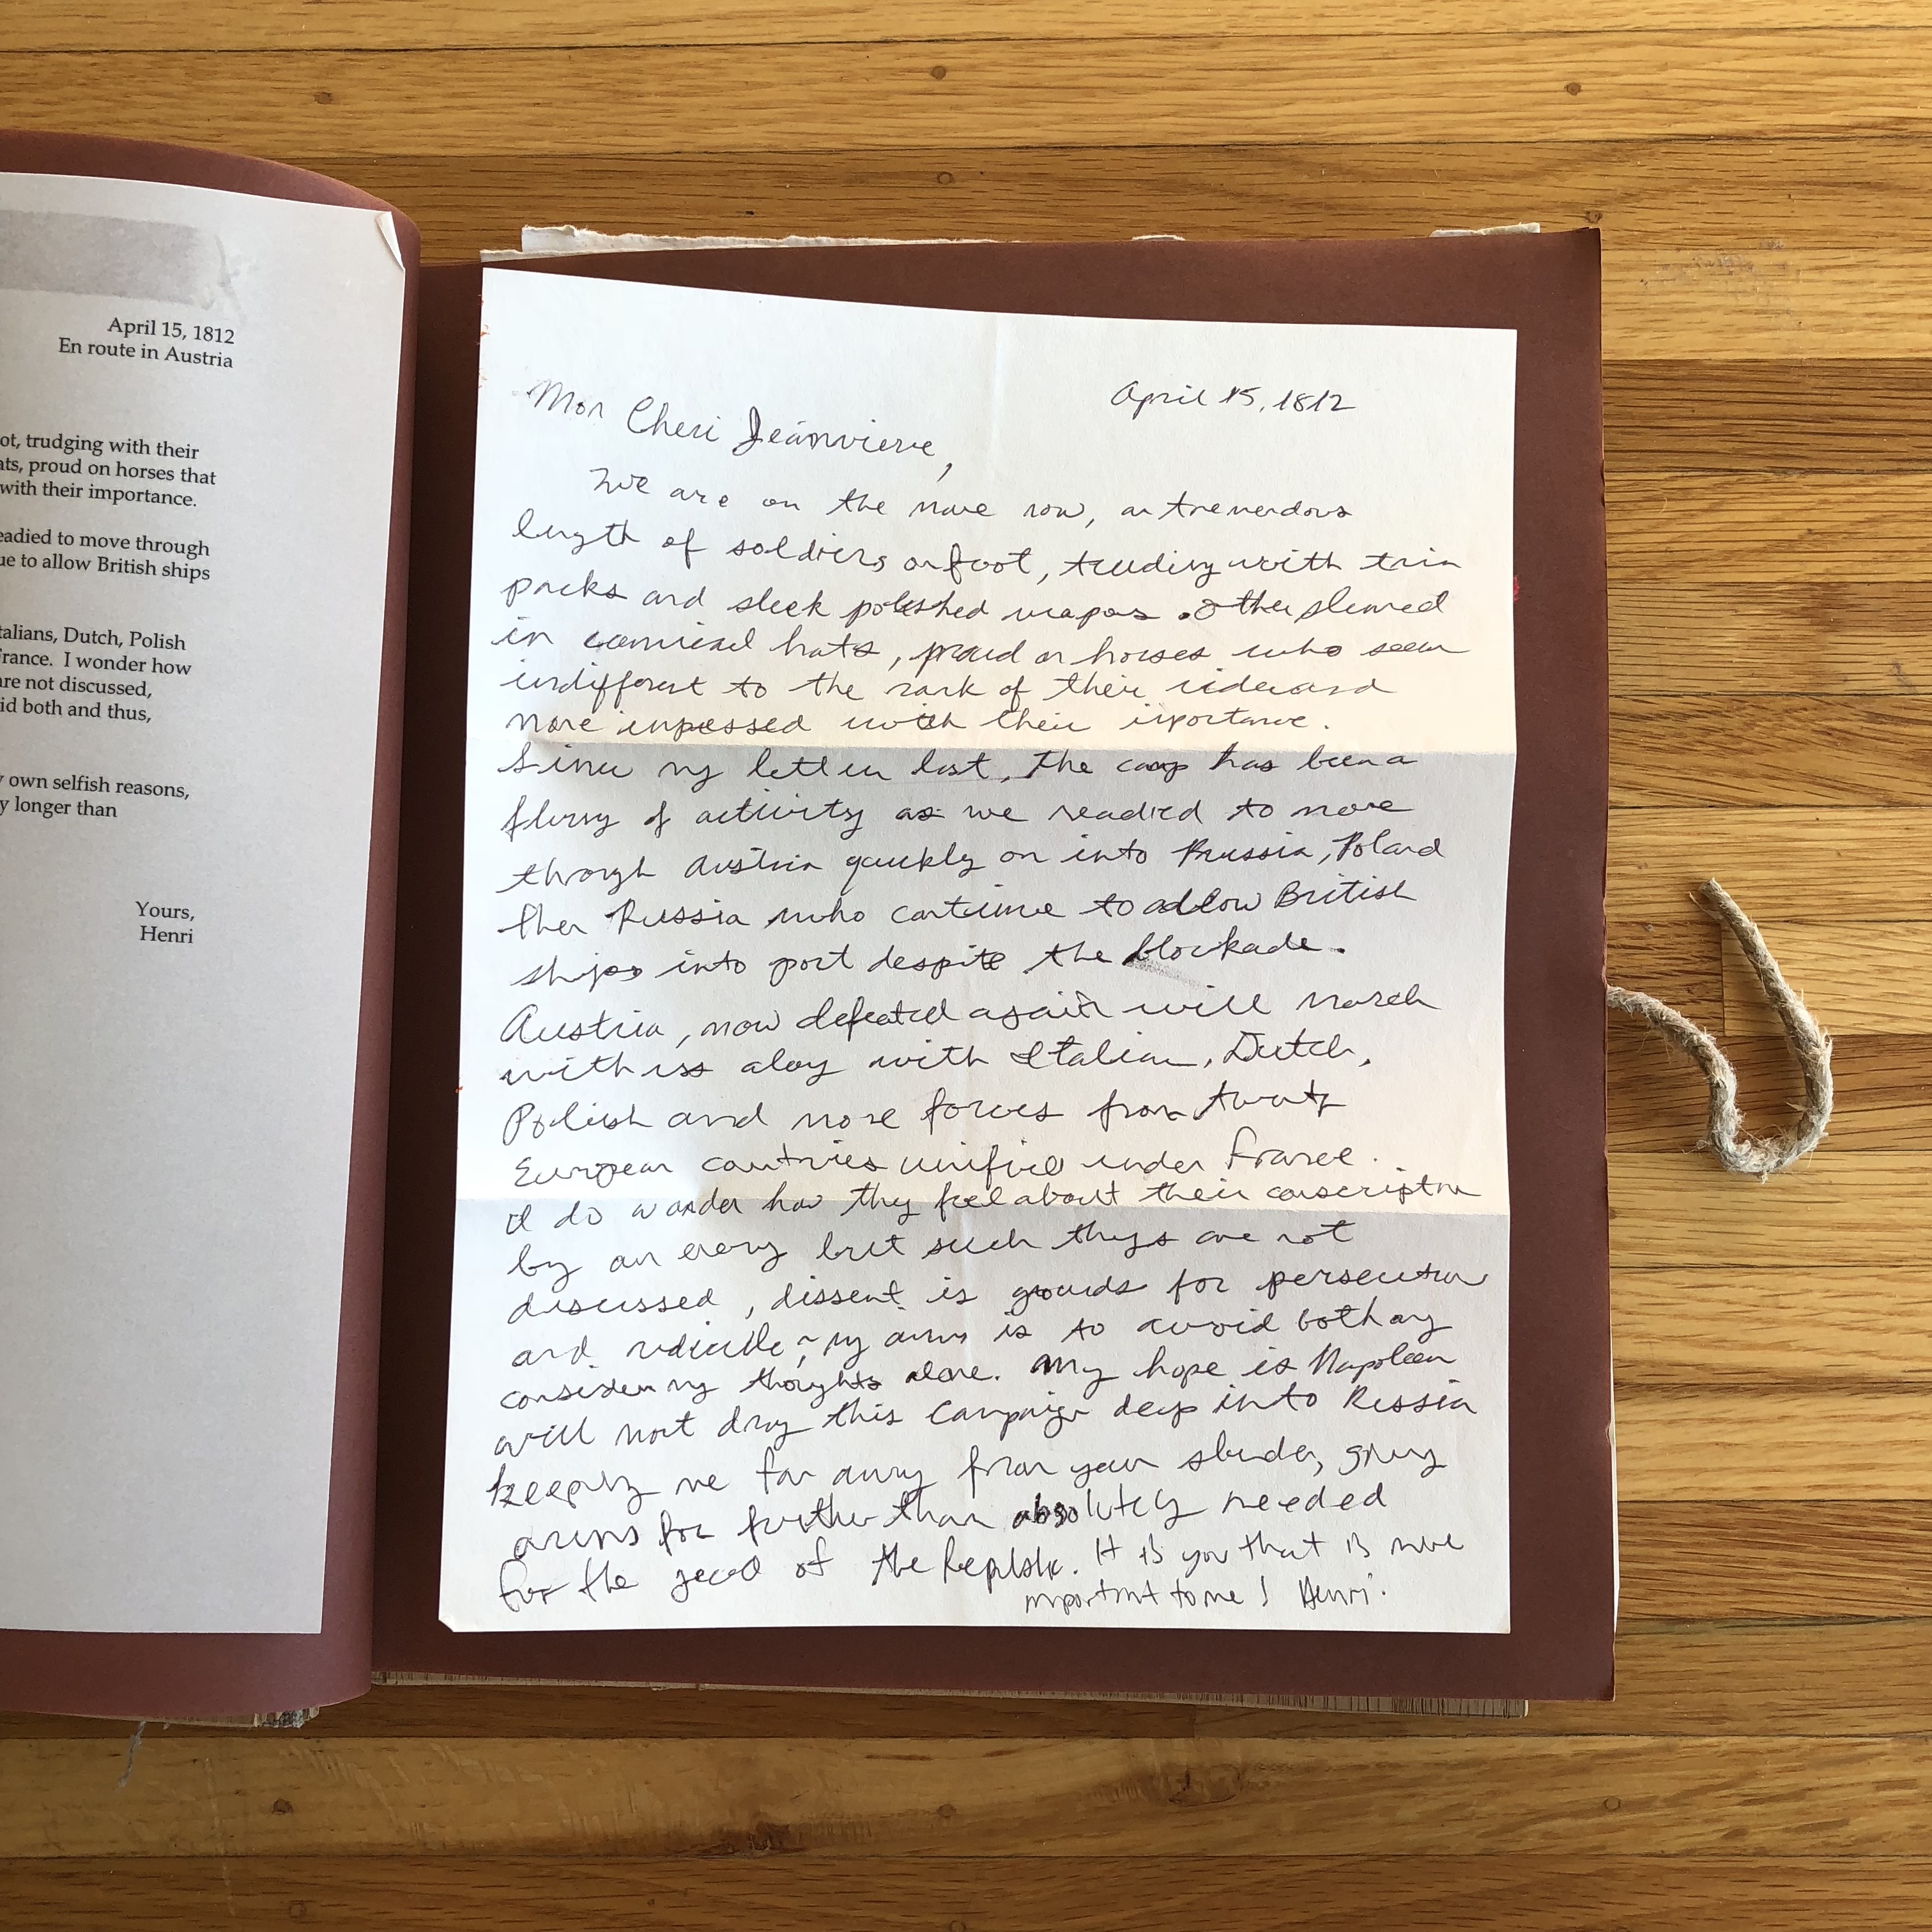 April 15, 1812
En route in Austria
ot, trudging with their
ats, proud on horses that
with their importance.
eadied to move through
ue to allow British ships
talians, Dutch, Polish
rance. I wonder how
are not discussed,
id both and thus,
y own selfish reasons,
y longer than
Yours,
Henri
April 15, 1812
Mon Cheri Jeanvieve,
We are on the move now, a tremendous
length of soldiers on foot, trudging with their
packs and sleek polished weapons. Others
in comical hats, proud on horses who seem
indifferent to the rank of their rider and
more impressed with their importance.
Since my letter last, the camp has been a
flurry of activity as we readied to move
through Austria quickly on into Prussia, Poland
then Russia who continue to allow British
ships into port despite the blockade.
Austria, now defeated again will march
with us along with Italian, Dutch,
Polish and more forces from twenty
European countries unified under France.
I do wonder how they feel about their conscription
by an enemy but such things are not
discussed, dissent is grounds for persecution
and ridicule, my aim is to avoid both
my thoughts alone. My hope is Napoleon
will not drag this campaign deep into Russia
keeping me far away from your slender,
arms for further than absolutely needed
for the good of the Republic. It is you that is more
important to me! Henri.